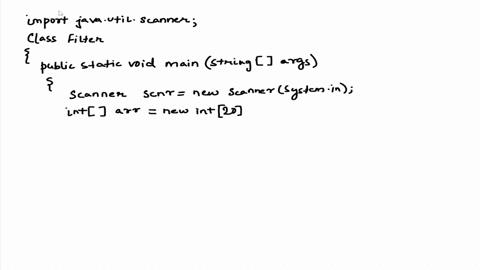 import java.util.scanner;
class Filter
{
public static void main (string [ ] args)
{
scanner scnr = new scanner(system.in);
int[ ] arr = new int [20]